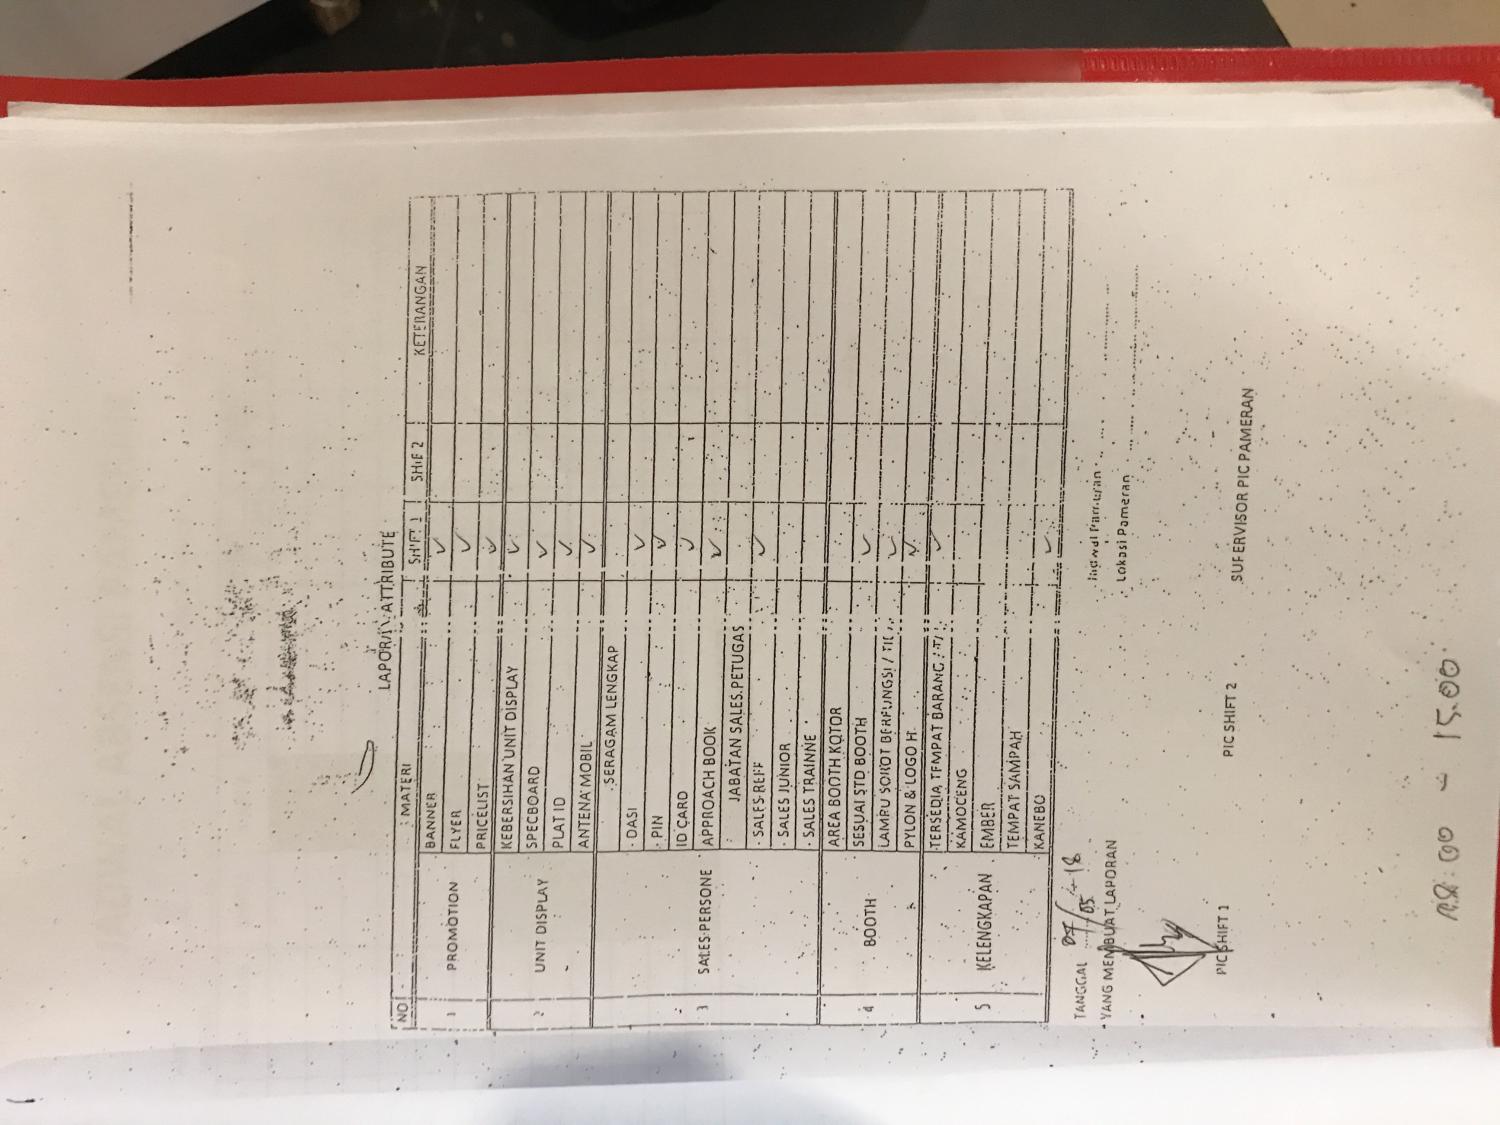 ATTRIBUTE
NO MATERI SHIFT 1 SHIF 2 KETERANGAN
1 PROMOTION BANNER ✓
FLYER ✓
PRICELIST ✓
2 UNIT DISPLAY KEBERSIHAN UNIT DISPLAY ✓
SPECBOARD ✓
PLAT ID ✓
ANTENA MOBIL ✓
3 SALES PERSONE SERAGAM LENGKAP
DASI ✓
PIN ✓
ID CARD ✓
APPROACH BOOK ✓
JABATAN SALES PETUGAS
SALES REFF ✓
SALES JUNIOR
SALES TRAINNE
4 BOOTH AREA BOOTH KOTOR
SESUAI STD BOOTH ✓
LAMPU SOROT BERFUNGSI / ✓
PYLON & LOGO H ✓
5 KELENGKAPAN TERSEDIA TEMPAT BARANG ✓
KAMOCENG
EMBER
TEMPAT SAMPAH
KANEBO ✓
TANGGAL
YANG MEMBUAT LAPORAN
Lokasi Pameran
PIC SHIFT 1 PIC SHIFT 2 SUFERVISOR PIC PAMERAN
15.00